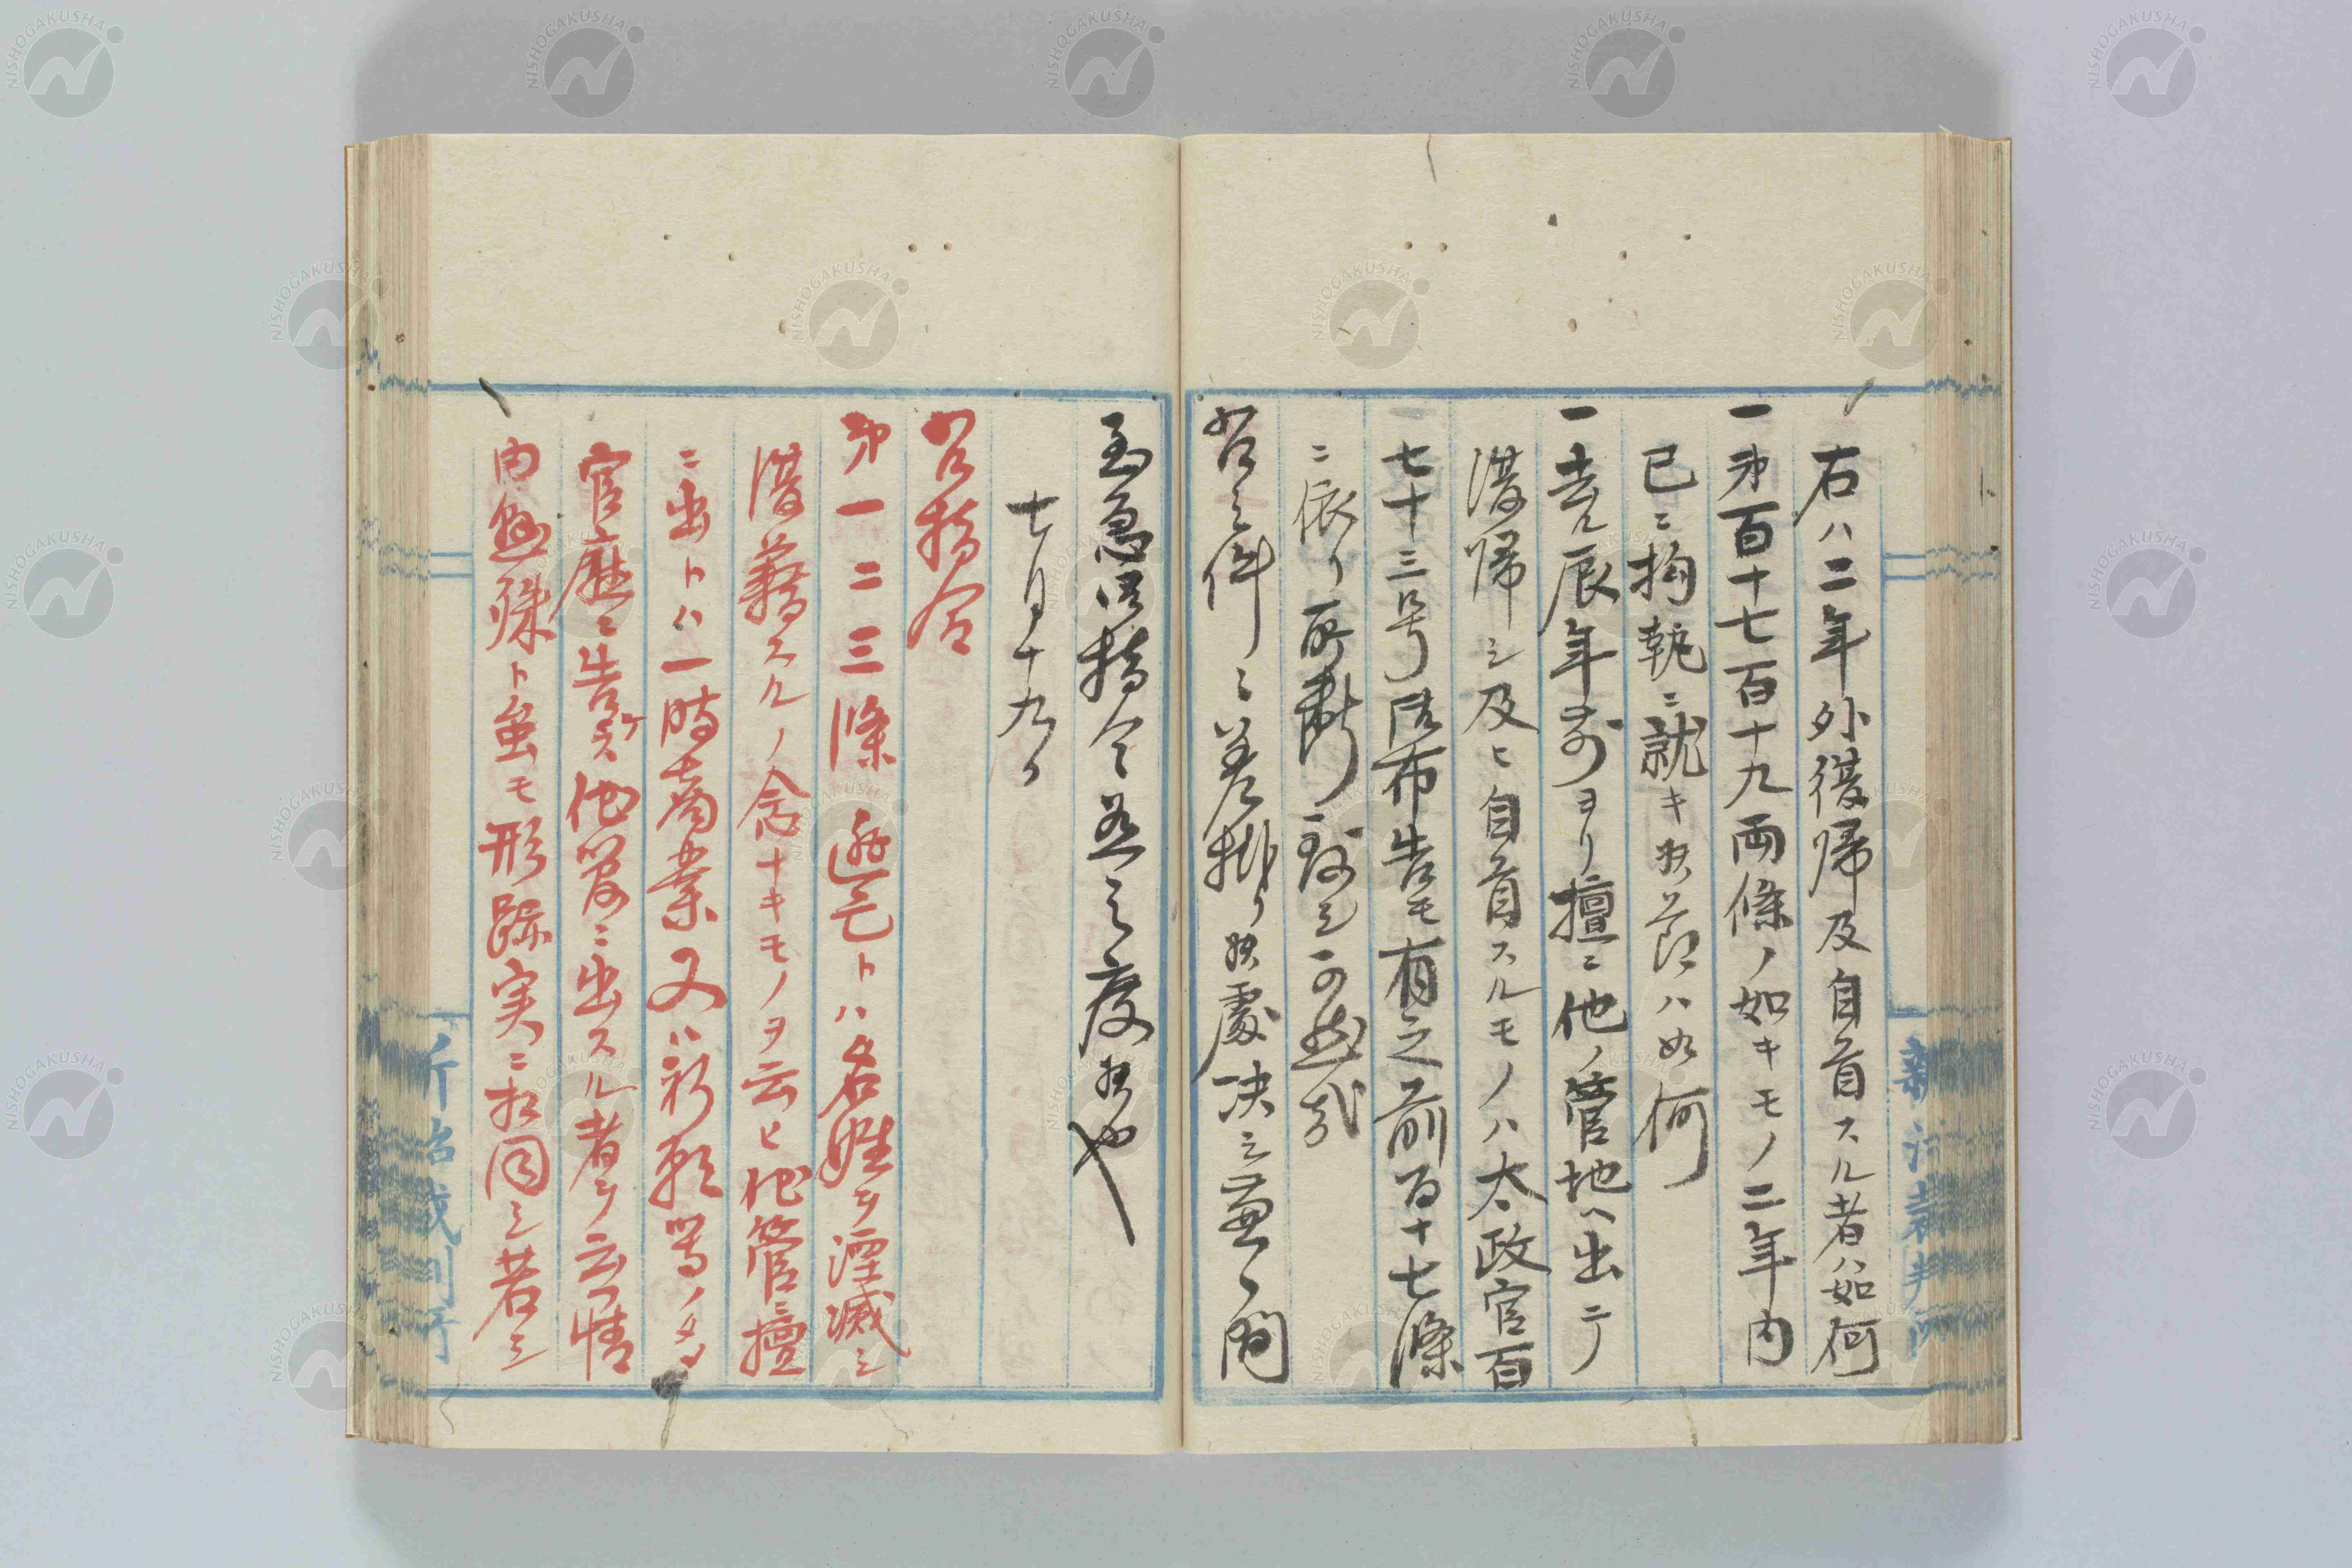 右ハ二年外復帰及自首スル者ハ如何
一第百十七百十九両條ノ如キモノ二年内
已ニ拘執ニ就キ候節ハ如何
一去ル辰年前ヨリ擅ニ他ノ管地ヘ出テ
潜帰シ及ヒ自首スルモノハ太政官百
七十三号御布告モ有之前百十七條
ニ依リ所断致シ可然哉
右之件ニ差掛リ候處決シ兼候間
至急御指令有之度候也
七月十九日
右指令
第一二三條逃亡トハ名姓ヲ湮滅シ
潜藉スルノ念ナキモノヲ云ヒ他管ニ擅
ニ出トハ一時商業又ハ祈願等ノタメ
官庁ニ告ケス他管ニ出スル者ヲ云フ情
内懸殊ト虽モ形跡実ニ相同シ若シ
新治裁判所
NISHOGAKUSHA